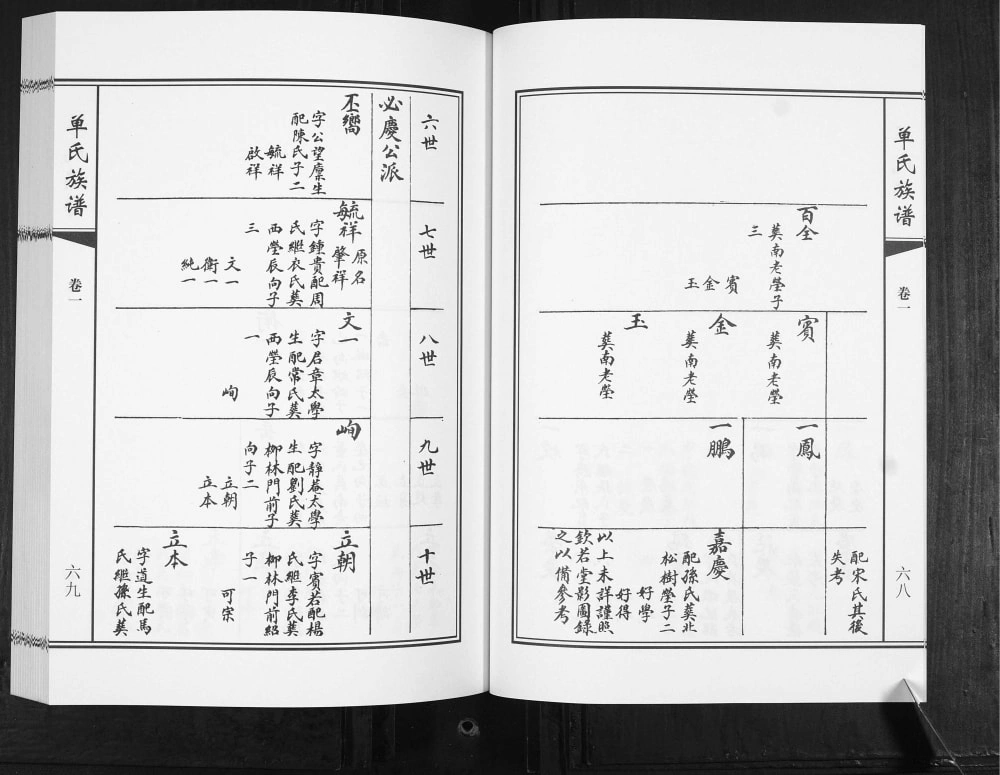 单氏族谱
卷一
六八
配宋氏其後
失考
百全
葬南老塋子
三
賓
金
玉
賓
葬南老塋
金
葬南老塋
玉
葬南老塋
一鳳
一鵬
嘉慶
配孫氏葬北
松樹塋子二
好學
好得
以上未詳謹照
欽若堂影圖錄
之以備參考
六世
七世
八世
九世
十世
必慶公派
丕嚮
字公望廩生
配陳氏子二
毓祥
啟祥
毓祥
原名
肇祥
字鍾貴配周
氏繼衣氏葬
西塋辰向子
三
文一
衛一
純一
文一
字君章太學
生配常氏葬
西塋辰向子
一
峋
峋
字靜菴太學
生配劉氏葬
柳林門前子
向子二
立朝
立本
立朝
字賓若配楊
氏繼李氏葬
柳林門前紹
子一
可宗
立本
字道生配馬
氏繼孫氏葬
单氏族谱
卷一
六九